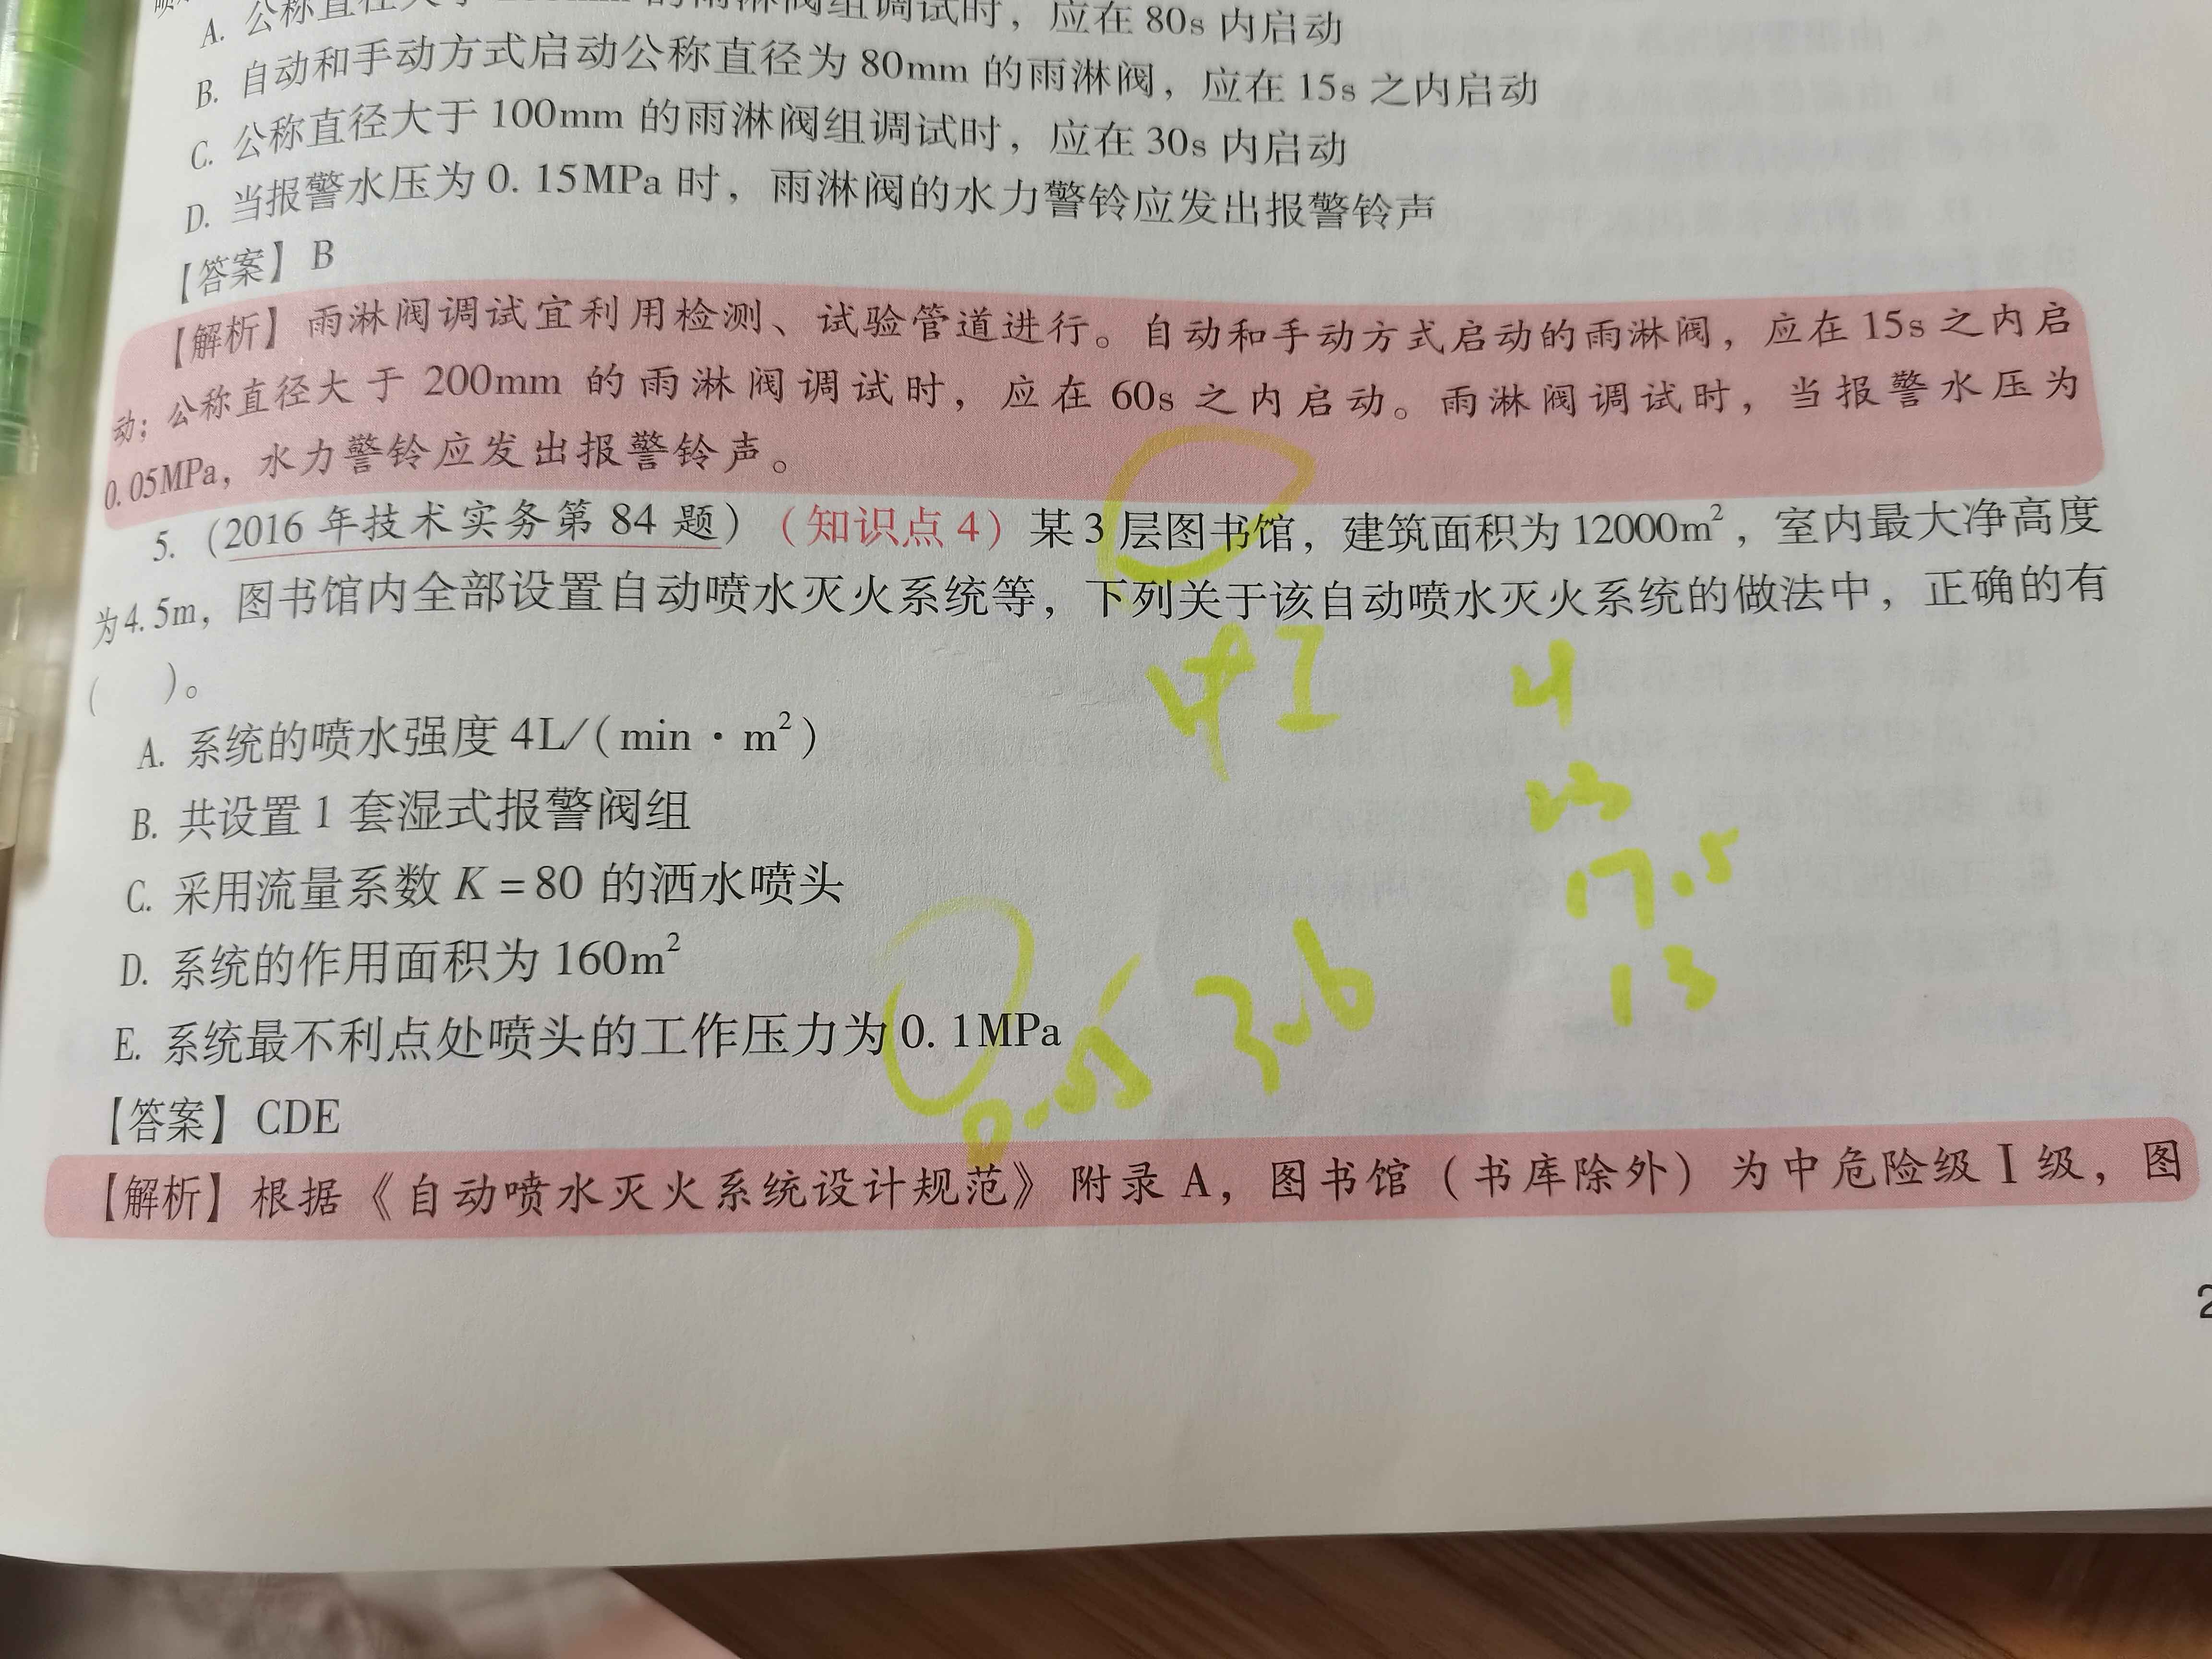 A. 公称直径大于 200mm 的雨淋阀组调试时，应在 80s 内启动
B. 自动和手动方式启动公称直径为 80mm 的雨淋阀，应在 15s 之内启动
C. 公称直径大于 100mm 的雨淋阀组调试时，应在 30s 内启动
D. 当报警水压为 0.15MPa 时，雨淋阀的水力警铃应发出报警铃声
【答案】B
【解析】雨淋阀调试宜利用检测、试验管道进行。自动和手动方式启动的雨淋阀，应在 15s 之内启
动；公称直径大于 200mm 的雨淋阀调试时，应在 60s 之内启动。雨淋阀调试时，当报警水压为
0.05MPa，水力警铃应发出报警铃声。
5.（2016 年技术实务第 84 题）（知识点 4）某 3 层图书馆，建筑面积为 12000m²，室内最大净高度
为 4.5m，图书馆内全部设置自动喷水灭火系统等，下列关于该自动喷水灭火系统的做法中，正确的有
（ ）。
中I 4
A. 系统的喷水强度 4L/(min·m²)
23
B. 共设置 1 套湿式报警阀组
17.5
C. 采用流量系数 K=80 的洒水喷头
13
D. 系统的作用面积为 160m²
3.6
E. 系统最不利点处喷头的工作压力为 0.1MPa
0.05
【答案】CDE
【解析】根据《自动喷水灭火系统设计规范》附录 A，图书馆（书库除外）为中危险级 I 级，图
2